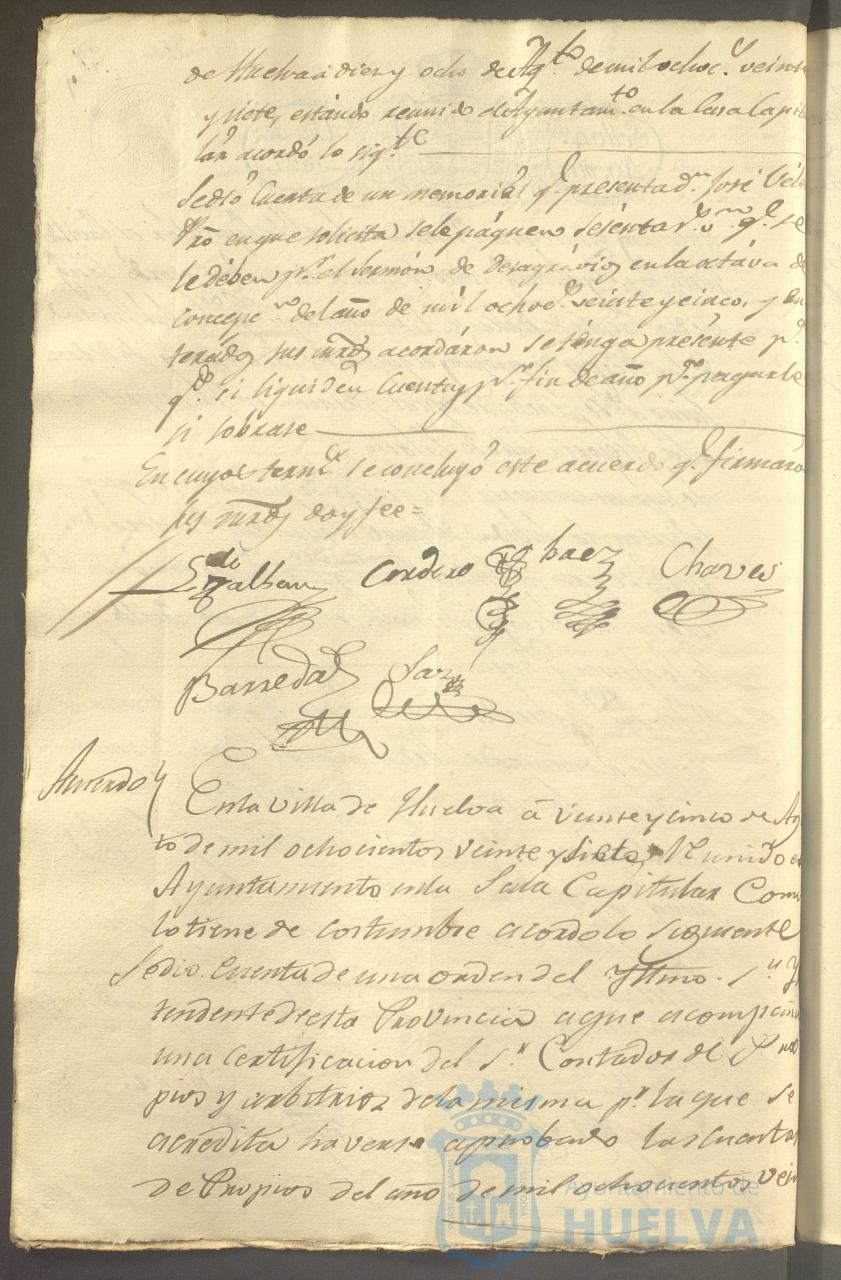 de Huelva á diez y ocho de Agto. de mil ochoc.s veinte
y siete, estándo reunido el Ayuntamto. en la Casa Capitu
lár acordó lo sigte.
Se dió Cuenta de un memoriál q.e presenta dn. José Vel
Pro. en que solicita se le páguen sesénta r.s vn. q.e se
le débén pr. el Sermón de Desagrávios en la octáva de
Concepcn. del año de mil ochoc.s veinte y cinco, y en
terados sus mrds. acordáron se ténga presénte pa.
qdo. se liquiden Cuentas pr. fin de año pa. pagarle
si sobrase
En cuyos term.s se concluyó este acuerdo q.e firmaron
sus mrds. doy fee =
Cordero
baez
Chaves
Barreda
Saz
Acuerdo
En la villa de Huelva á veinte y cinco de Ag
to de mil ochocientos veinte y siete, Reunido el
Ayuntamiento en la Sala Capitular Como
lo tiene de costumbre acordo lo siguiente
Se dio Cuenta de una orden del Yltmo. Sr. Yn
tendente de esta Provincia a que acompaña
una Certificacion del Sr. Contador de Pro
pios y arbitrios de la misma pr. la que se
acredita haverse aprobado las Cuentas
de Propios del año de mil ochocientos vein
Ayuntamiento de
HUELVA